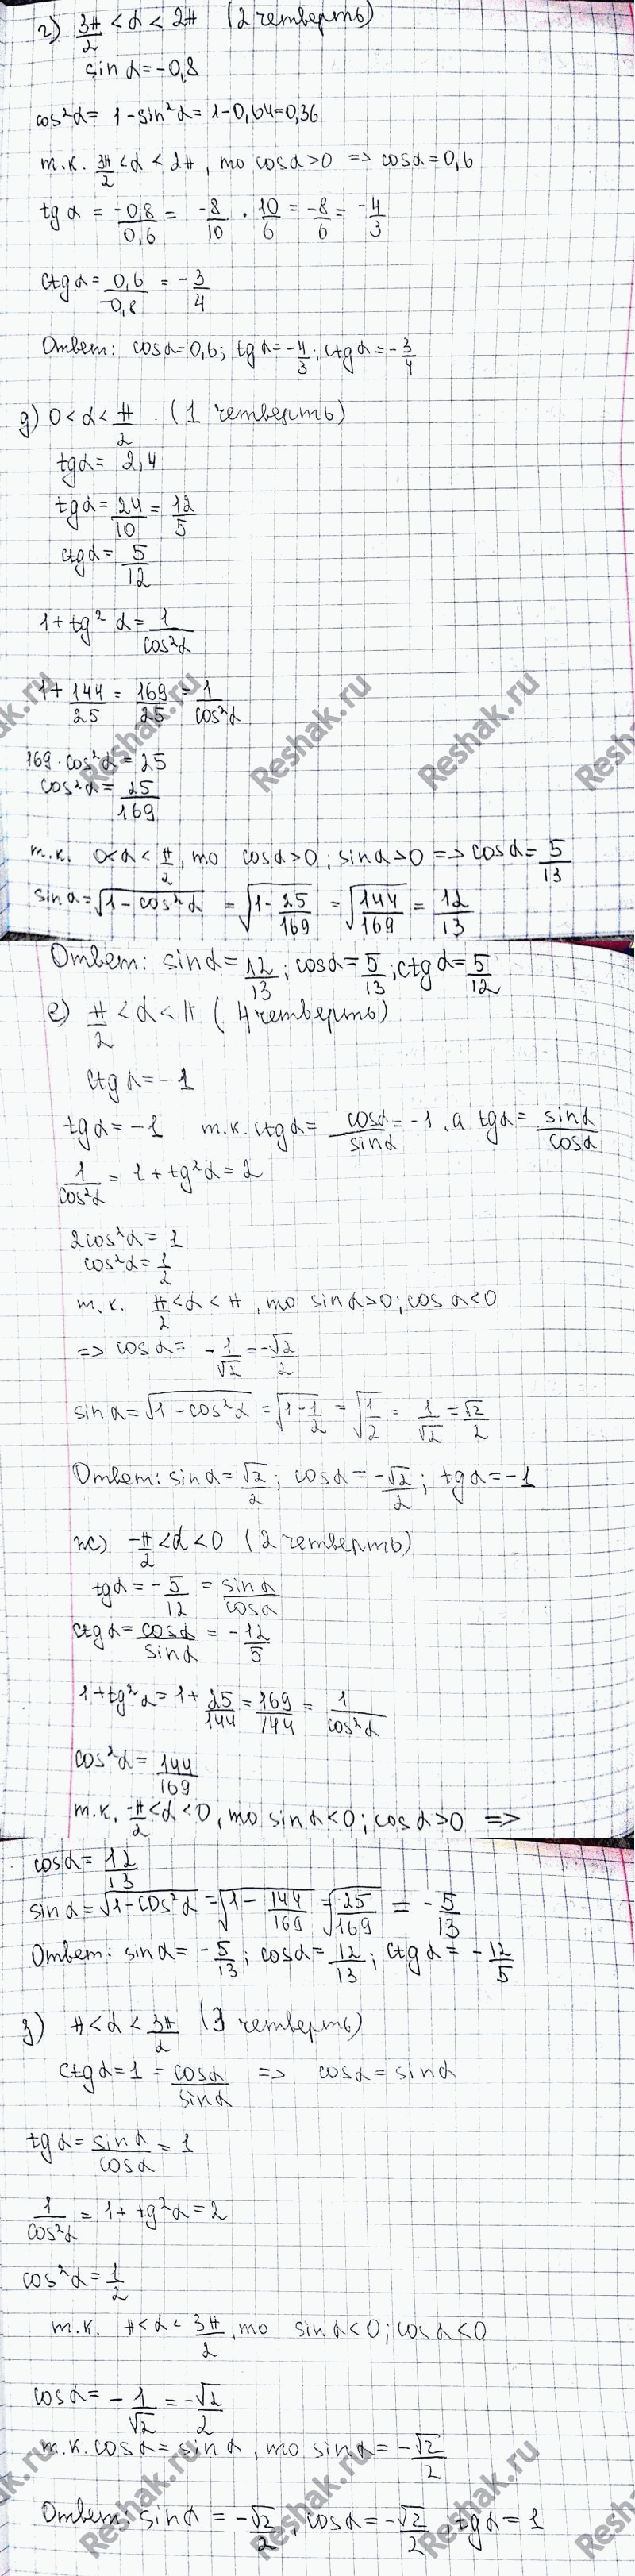 г) 3π/2 < α < 2π (2 четверть)
sin α = -0,8
cos²α = 1 - sin²α = 1 - 0,64 = 0,36
т.к. 3π/2 < α < 2π, то cosα > 0 => cosα = 0,6
tg α = -0,8/0,6 = -8/10 · 10/6 = -8/6 = -4/3
ctg α = 0,6/-0,8 = -3/4
Ответ: cosα = 0,6; tg α = -4/3; ctg α = -3/4
д) 0 < α < π/2 (1 четверть)
tgα = 2,4
tgα = 24/10 = 12/5
ctgα = 5/12
1 + tg² α = 1/cos²α
1 + 144/25 = 169/25 = 1/cos²α
169 · cos²α = 25
cos²α = 25/169
т.к. 0<α < π/2, то cosα > 0; sinα > 0 => cosα = 5/13
sinα = √(1 - cos²α) = √(1 - 25/169) = √(144/169) = 12/13
Ответ: sinα = 12/13; cosα = 5/13; ctgα = 5/12
е) π/2 < α < π (4 четверть)
ctg α = -1
tgα = -1 т.к. ctgα = cosα/sinα = -1, а tgα = sinα/cosα
1/cos²α = 1 + tg²α = 2
2cos²α = 1
cos²α = 1/2
т.к. π/2 < α < π, то sinα > 0; cos α < 0
=> cosα = -1/√2 = -√2/2
sinα = √(1 - cos²α) = √(1 - 1/2) = √(1/2) = 1/√2 = √2/2
Ответ: sinα = √2/2; cosα = -√2/2; tgα = -1
ж) -π/2 < α < 0 (2 четверть)
tgα = -5/12 = sinα/cosα
ctgα = cosα/sinα = -12/5
1 + tg²α = 1 + 25/144 = 169/144 = 1/cos²α
cos²α = 144/169
т.к. -π/2 < α < 0, то sinα < 0; cosα > 0 =>
cosα = 12/13
sinα = √(1 - cos²α) = √(1 - 144/169) = √(25/169) = -5/13
Ответ: sinα = -5/13; cosα = 12/13; ctgα = -12/5
з) π < α < 3π/2 (3 четверть)
ctgα = 1 = cosα/sinα => cosα = sinα
tgα = sinα/cosα = 1
1/cos²α = 1 + tg²α = 2
cos²α = 1/2
т.к. π < α < 3π/2, то sinα < 0; cosα < 0
cosα = -1/√2 = -√2/2
т.к. cosα = sinα, то sinα = -√2/2
Ответ: sinα = -√2/2; cosα = -√2/2; tgα = 1
Reshak.ru
Reshak.ru
Reshak.ru
Reshak.ru
Reshak.ru
Reshak.ru
Reshak.ru
Reshak.ru